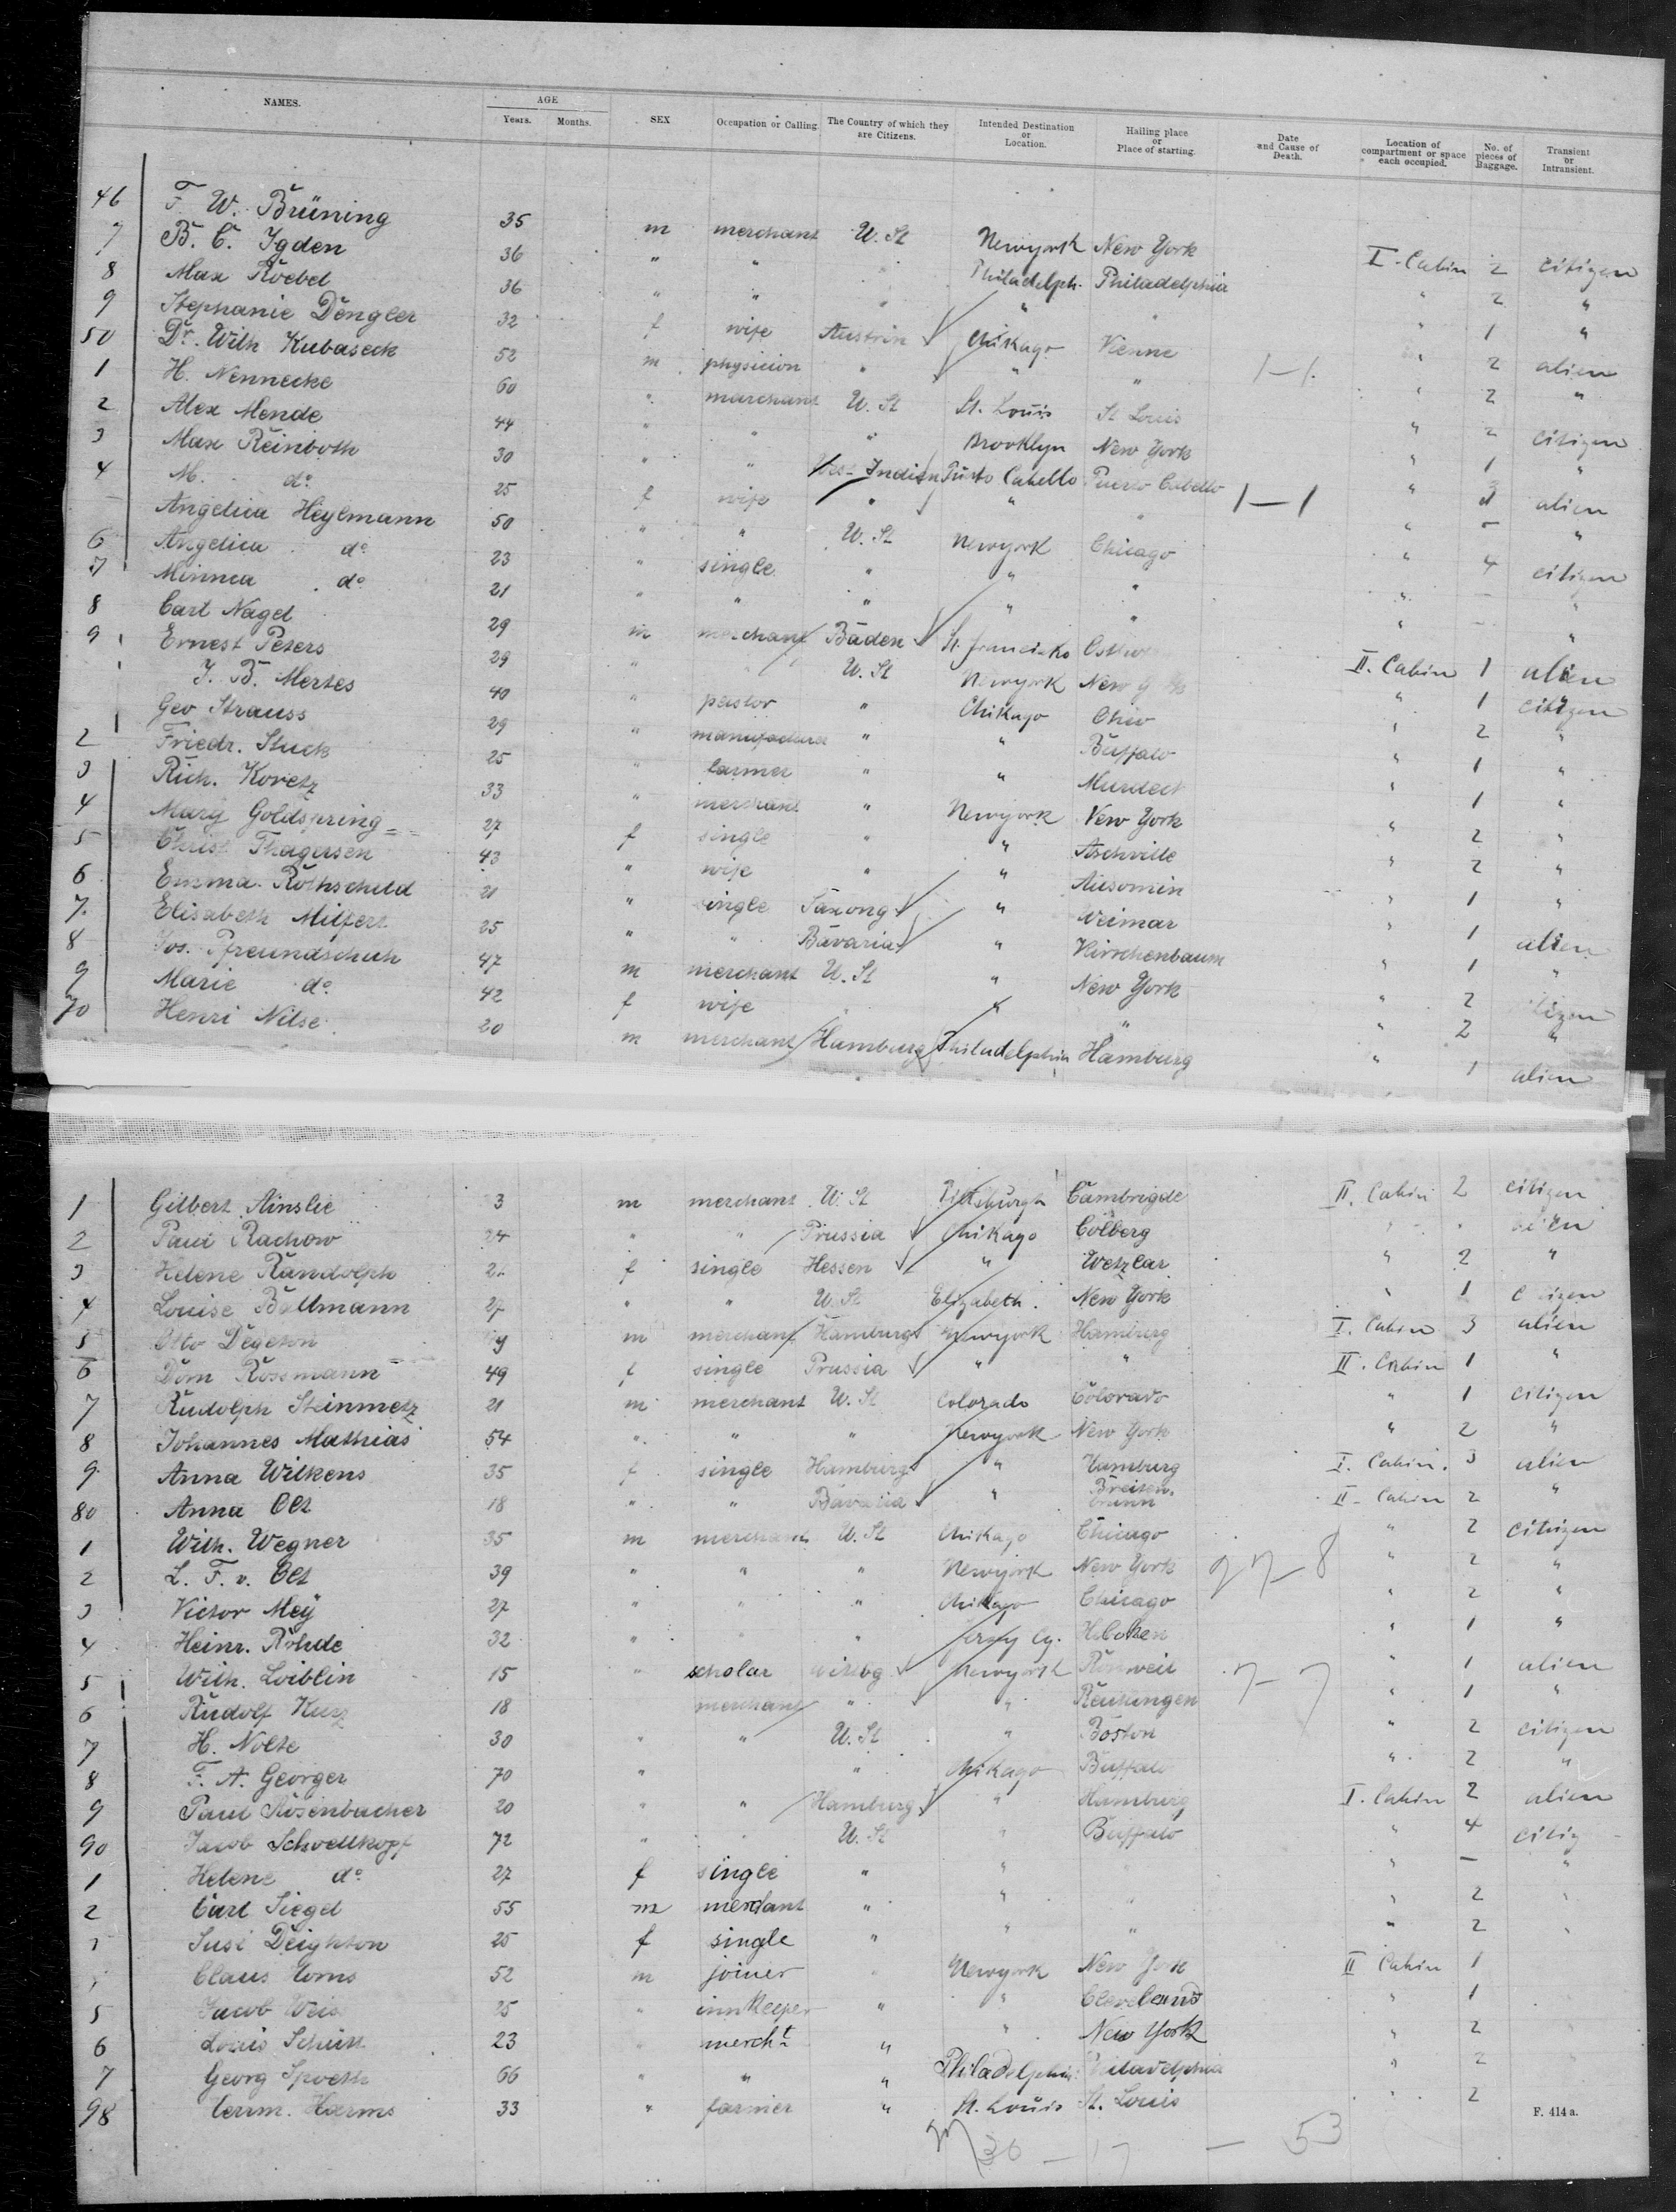 NAMES. AGE Years. Months. SEX Occupation or Calling. The Country of which they are Citizens. Intended Destination or Location. Hailing place or Place of starting. Date and Cause of Death. Location of compartment or space each occupied. No. of pieces of Baggage. Transient or Intransient.
46 F. W. Brüning 35 m merchant U. St Newyork New York I. Cabin 2 citizen
7 B. C. Igden 36 " " Philadelph. Philadelphia " 2 "
8 Max Roebel 36 " " " " " " 1 "
9 Stephanie Dengler 32 f wife Austria Chikago Vienne 1-1. 2 alien
50 Dr. Wilh Kubaseck 52 m physician " " " " 2 "
1 H. Nennecke 60 " merchant U. St St. Louis St Louis " 2 citizen
2 Alex Mende 44 " " " Brooklyn New York " 1 "
3 Max Reinboth 30 " " West Indien Puerto Cabello 1-1 " alien
4 M. do 25 f wife " " " " - "
Angelica Heylmann 50 " " U. St Newyork Chicago " 4 citizen
6 Angelica do 23 " single " " " " - "
7 Minna do 21 " " " " " " - "
8 Carl Nagel 29 m merchant Baden St. Francisko II. Cabin 1 alien
9 Ernest Peters 29 " " U. St Newyork New " 1 citizen
J. B. Mertes 40 " pastor " Chikago Ohio " 2 "
Geo Strauss 29 " manufacturer " " Buffalo " 1 "
2 Friedr. Stuck 25 " farmer " " " 1 "
3 Rich. Koretz 33 " merchant " Newyork New York " 2 "
4 Mary Goldspring 27 f single " " Aschville " 2 "
5 Christ Thagersen 43 " wife " " " 1 "
6 Emma Rothschild 21 " single Saxony " Weimar " 1 alien
7. Elisabeth Milfert 25 " " Bavaria " Kirschenbaum " 1 "
8 Jos. Pfreundschuh 47 m merchant U. St " New York " 2 citizen
9 Marie do 42 f wife " " " 2 "
70 Henri Nilse 20 m merchant Hamburg Philadelphia Hamburg " 1 alien
1 Gilbert Ainslie 3 m merchant U. St Pittsburgh Cambrigde II. Cabin 2 citizen
2 Paul Rachow 24 " " Prussia Chikago Colberg " " alien
3 Helene Randolph f single Hessen " Wetzlar " 2 "
4 Louise Bollmann 27 " " U. St Elizabeth. New York " 1 citizen
5 Otto Degeton m merchant Hamburg Newyork Hamburg I. Cabin 3 alien
6 Dom Rossmann 49 f single Prussia " " II. Cabin 1 "
7 Rudolph Steinmetz 21 m merchant U. St Colorado Colorado " 1 citizen
8 Johannes Mathias 54 " " " Newyork New York " 2 "
9 Anna Wilkens 35 f single Hamburg " Hamburg I. Cabin. 3 alien
80 Anna Olt 18 " " Bavaria " Breitenbrunn II. Cabin 2 "
1 Wilh. Wegner 35 m merchant U. St Chikago Chicago " 2 citizen
2 L. F. v. Olt 39 " " " Newyork New York " 2 "
3 Victor Mey 27 " " " Chikago Chicago " 2 "
4 Heinr. Rohde 32 " " " Jersy Cy. Hoboken " 1 "
5 Wilh. Loiblin 15 " scholar Wirtbg Newyork " 1 alien
6 Rudolf Kurz 18 merchant " " Reutlingen " 1 "
7 H. Nolte 30 " " U. St " Boston " 2 citizen
8 F. A. Georger 70 " " Chikago Buffalo " 2 "
9 Paul Rosenbacher 20 " " Hamburg " Hamburg I. Cabin 2 alien
90 Jacob Schoellkopf 72 " " U. St " Buffalo " 4 citiz
1 Helene do 27 f single " " " - "
2 Carl Siegel 55 m merdant " " " " 2 "
Susi Deighton 25 f single " " " " 2 "
Claus 52 m joiner " Newyork New York II Cabin 1
5 Jacob Weis 25 " innkeeper " " Cleveland " 1
6 Louis 23 " mercht " " New York " 2
7 Georg Spoeth 66 " " " Philadelphia Philadelphia " 2
98 Herm. Harms 33 " farmer " St. Louis St. Louis " 2
F. 414 a.
36 - 17 - 53